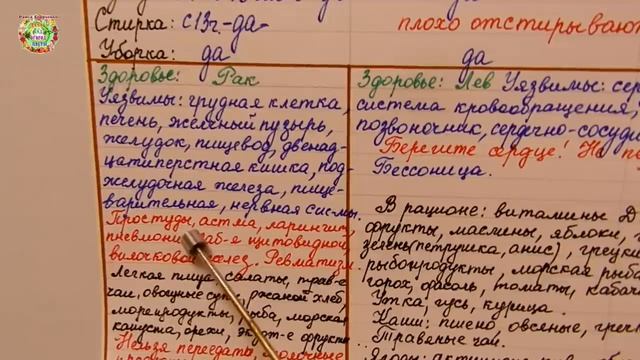 Стирка: с 13ч.-да-
Уборка: да
плохо отстирывают
да
Здоровье: Рак
Уязвимы: грудная клетка,
печень, желчный пузырь,
желудок, пищевод, двенад-
цатиперстная кишка, под-
желудочная железа, пище-
варительная, нервная сис-мы.
Простуды, астма, ларингит,
пневмони щитовидной
вилочковой желез. Ревматизм.
Легкая пища, салаты, трав-е
чаи, овощные суп ржаной хлеб,
морепродукты, рыба, морская
капуста, орехи, экзот-е фрукты
Нельзя переедать, молочные
Здоровье: Лев Уязвимы: сер
система кровообращения,
позвоночник, сердечно-сосуд
Берегите сердце! Не пе
Бессоница.
В рационе: витамины Д
фрукты, маслины, яблоки,
зелень (петрушка, анис), грецки
рыбопродукты, морская рыба
горох, фасоль, томаты, кабач
Утка, гусь, курица.
Каши: пшено, овсяные, гречн
Травяные чаи.